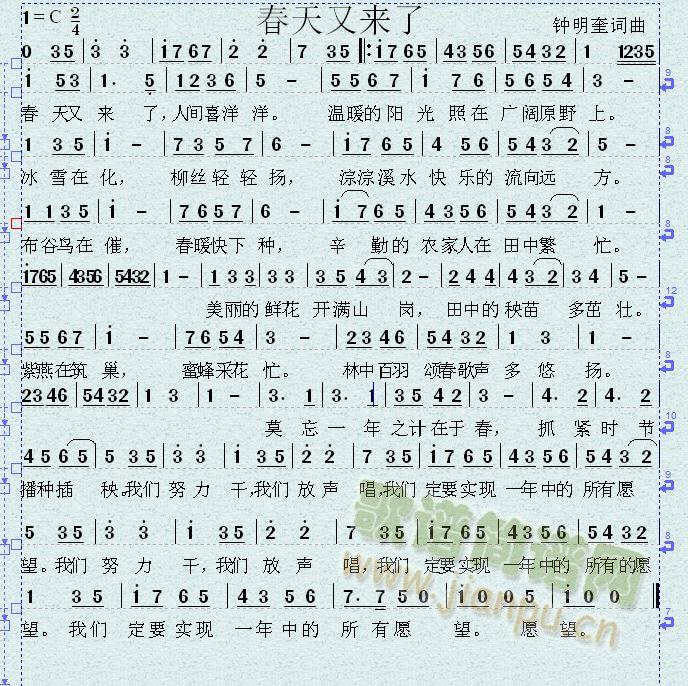 春天又来了
1=C 2/4 钟明奎词曲
0 35 | 3 3 | 1767 | 2 2 | 7 35 ‖: 1765 | 4356 | 5432 | 1 1235
1 53 | 1· 5 | 1236 | 5 - | 5567 | 1 76 | 5654 | 3 -
春 天又 来 了,人间喜洋 洋。 温暖的阳 光 照在 广阔原野 上。
1 35 | 1 - | 7357 | 6 - | 1765 | 4 56 | 5432 | 5 -
冰 雪在 化, 柳丝轻轻 扬, 淙淙溪水 快 乐的 流向远 方。
1135 | 1 - | 7657 | 6 - | 1765 | 4356 | 5432 | 1 -
布谷鸟在 催, 春暖快下 种, 辛 勤的 农家人在 田中繁 忙。
1765 | 4356 | 5432 | 1 - | 133 | 33 | 3543 | 2 - | 244 | 432 | 34 | 5 -
美丽的 鲜花 开满山 岗, 田中的 秧苗 多茁 壮。
5567 | 1 - | 7654 | 3 - | 2346 | 5432 | 1 3 | 1 -
紫燕在筑 巢, 蜜蜂采花 忙。 林中百羽 颂春歌声 多 悠 扬。
2346 | 5432 | 1 3 | 1 - | 3· 1 | 3· 1 | 35 42 | 3 - | 4· 2 | 4· 2
莫 忘 一 年 之计在于 春, 抓 紧 时 节
4565 | 5 35 | 3 3 | 1 35 | 2 2 | 7 35 | 1765 | 4356 | 5432
播种插 秧。我们 努 力 干,我们 放 声 唱,我们 定要实现 一年中的 所有愿
5 35 | 3 3 | 1 35 | 2 2 | 7 35 | 1765 | 4356 | 5432
望。我们 努 力 干,我们 放 声 唱,我们 定要实现 一年中的 所有的愿
1 35 | 1765 | 4356 | 7· 750 | 1005 | 100 ‖
望。我们 定要实现 一年中的 所 有愿 望。 愿 望。
www.jianpu.cn